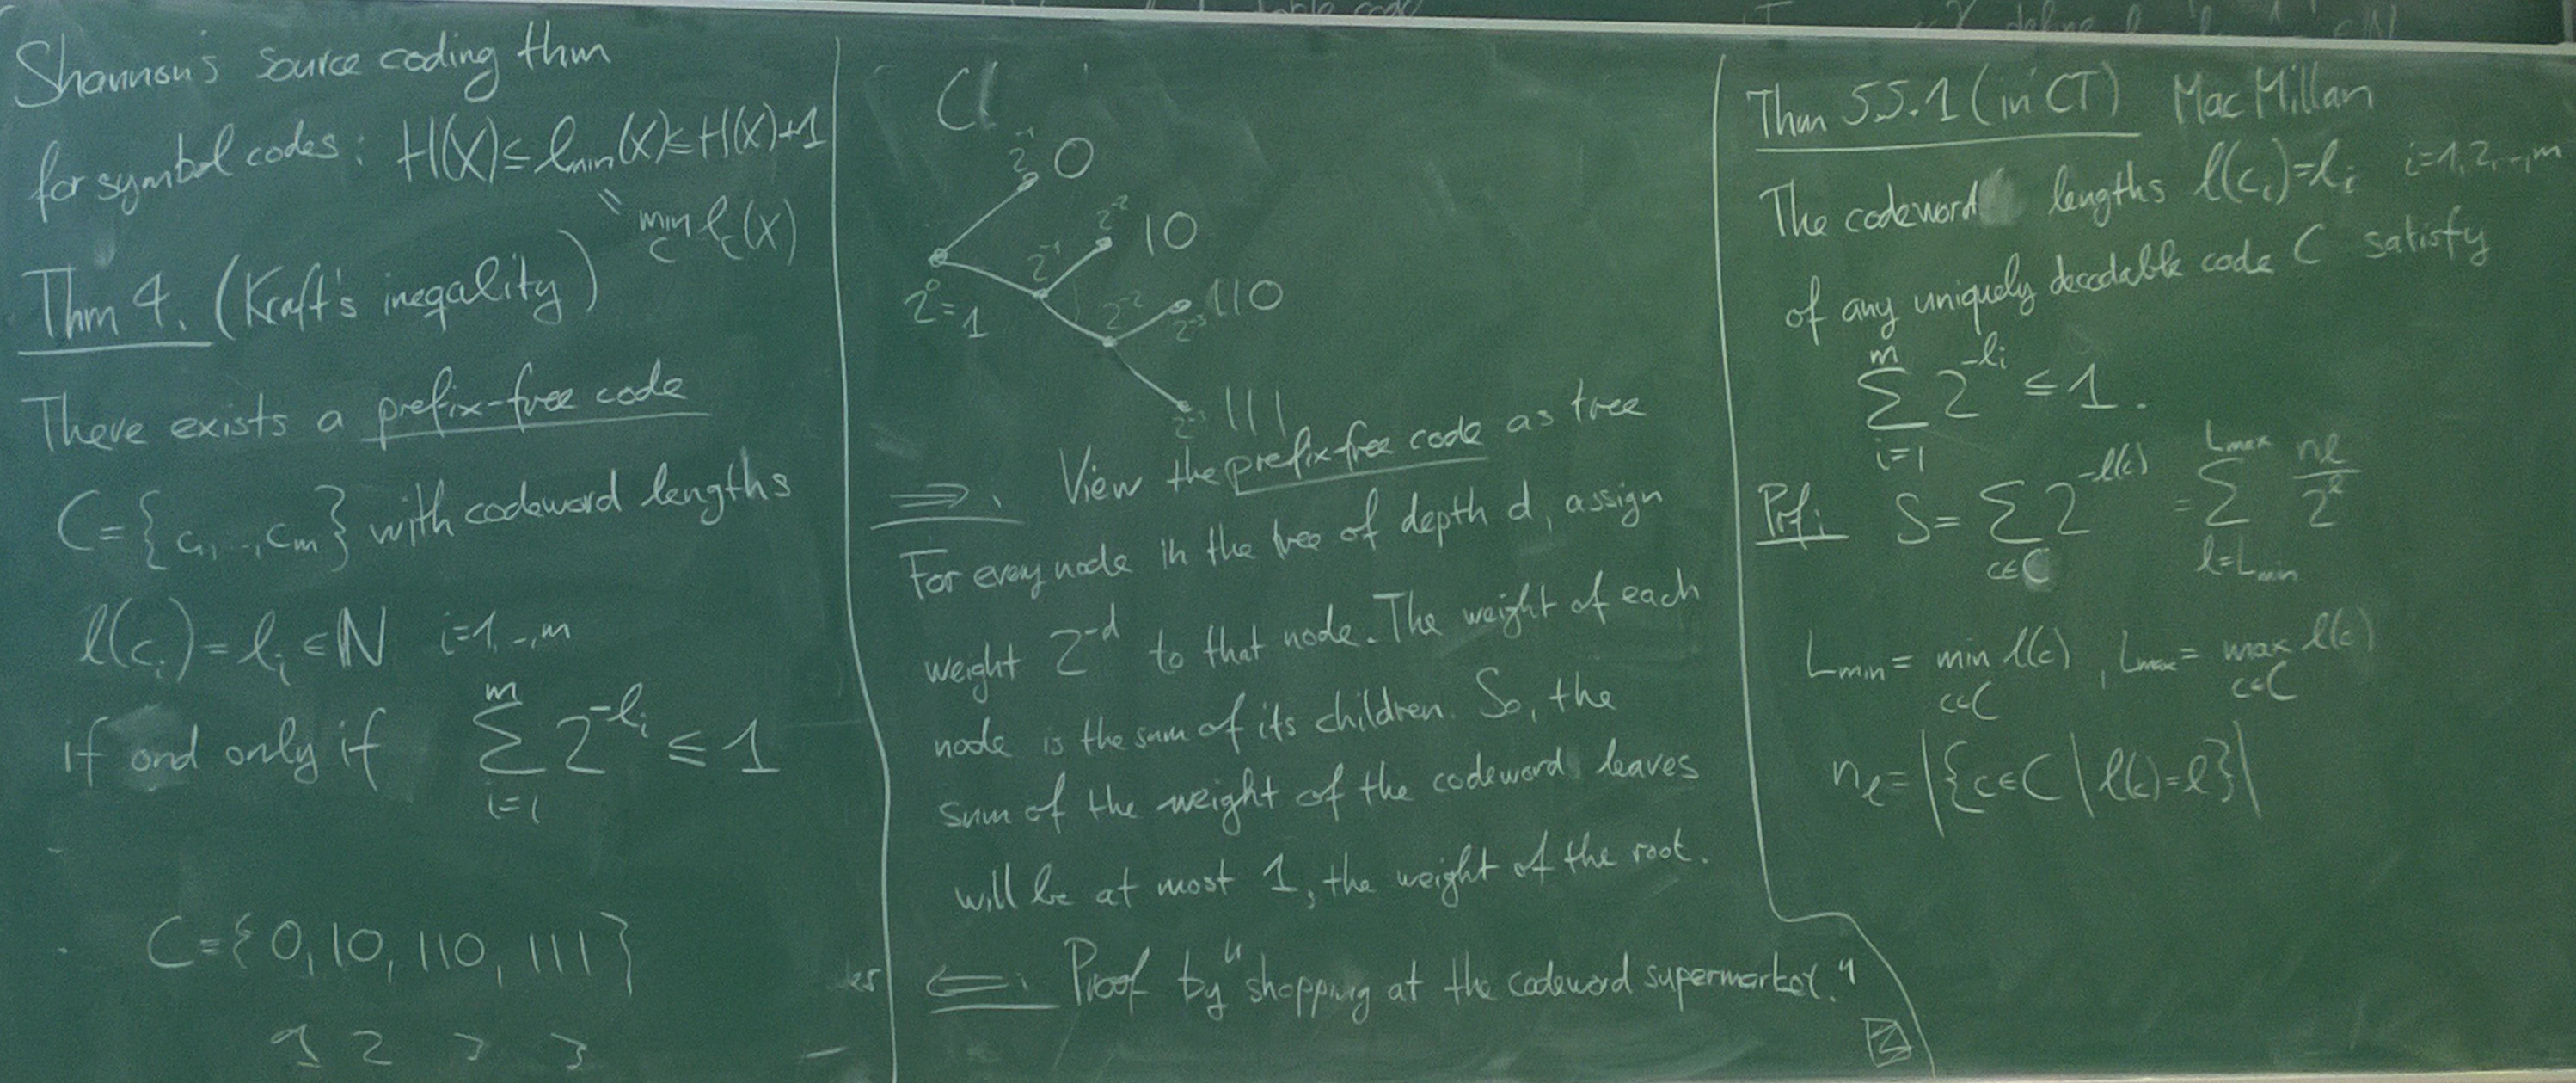 Shannon's source coding thm
for symbol codes: H(X) ≤ l_min(X) ≤ H(X)+1
" min_C l_C(X)
Thm 4. (Kraft's ineqality)
There exists a prefix-free code
C={c_1,..,c_m} with codeword lengths
l(c_i) = l_i ∈ ℕ i=1,..,m
if and only if ∑_{i=1}^{m} 2^{-l_i} ≤ 1
C={0,10,110,111}
1 2 3 3
2^{-1} 0
2^{-2} 10
2^{-1}
2^0=1
2^{-2} 2^{-3} 110
2^{-3} 111
⇒: View the prefix-free code as tree
For every node in the tree of depth d, assign
weight 2^{-d} to that node. The weight of each
node is the sum of its children. So, the
sum of the weight of the codeword leaves
will be at most 1, the weight of the root.
⇐: Proof by "shopping at the codeword supermarket."
Thm 5.5.1 (in CT) MacMillan
The codeword lengths l(c_i)=l_i i=1,2,..,m
of any uniquely decodable code C satisfy
∑_{i=1}^{m} 2^{-l_i} ≤ 1.
Prf: S = ∑_{c∈C} 2^{-l(c)} = ∑_{l=L_min}^{L_max} n_l/2^l
L_min = min_{c∈C} l(c), L_max = max_{c∈C} l(c)
n_l = |{c∈C | l(c)=l}|